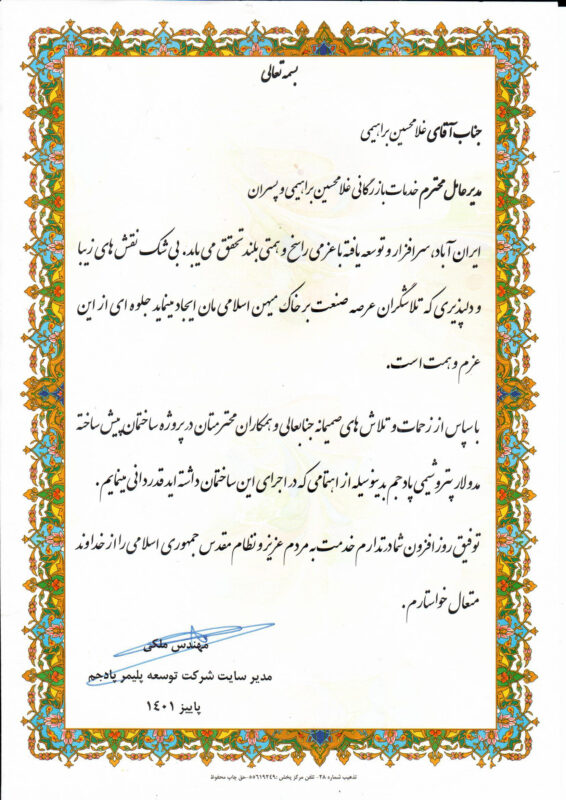 بسمه تعالی
جناب آقای غلامحسین براهیمی
مدیر عامل محترم خدمات بازرگانی غلامحسین براهیمی و پسران
ایران آباد، سرافراز و توسعه یافته با عزمی راسخ و همتی بلند تحقق می یابد. بی شک نقش های زیبا
و دلپذیری که تلاشگران عرصه صنعت بر خاک میهن اسلامی مان ایجاد مینماید جلوه ای از این
عزم و همت است.
با سپاس از زحمات و تلاش های صمیمانه جنابعالی و همکاران محترمتان در پروژه ساختمان پیش ساخته
مدولار پتروشیمی پادجم بدینوسیله از اهتمامی که در اجرای این ساختمان داشته اید قدردانی مینمایم.
توفیق روز افزون شما در تدارم خدمت به مردم عزیز و نظام مقدس جمهوری اسلامی را از خداوند
متعال خواستارم.
مهندس ملکی
مدیر سایت شرکت توسعه پلیمر پادجم
پاییز ١٤٠١
تذهیب شماره ٢٨ - تلفن مرکز پخش :٥٥٦١٩٢٤٩-حق چاپ محفوظ